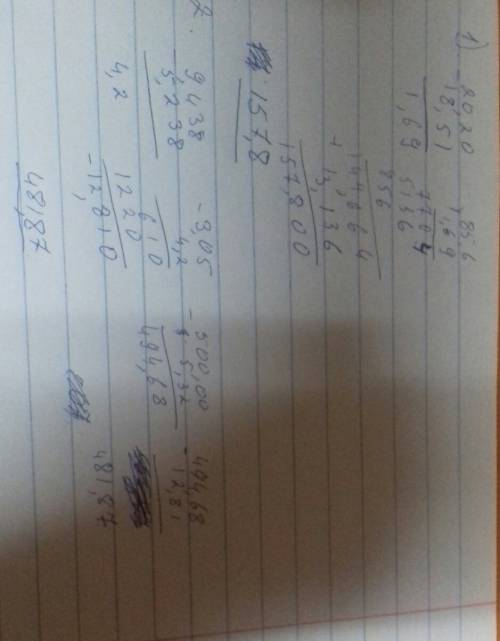 1) - 20,20
18,51
1,69
× 85,6
1,69
7704
5136
856
144,664
+ 13,136
157,800
157,8
2.
- 9,438
5,238
4,2
- 3,05
4,2
610
1220
12,810
- 500,00
5,32
494,68
- 494,68
12,81
481,87
481,87